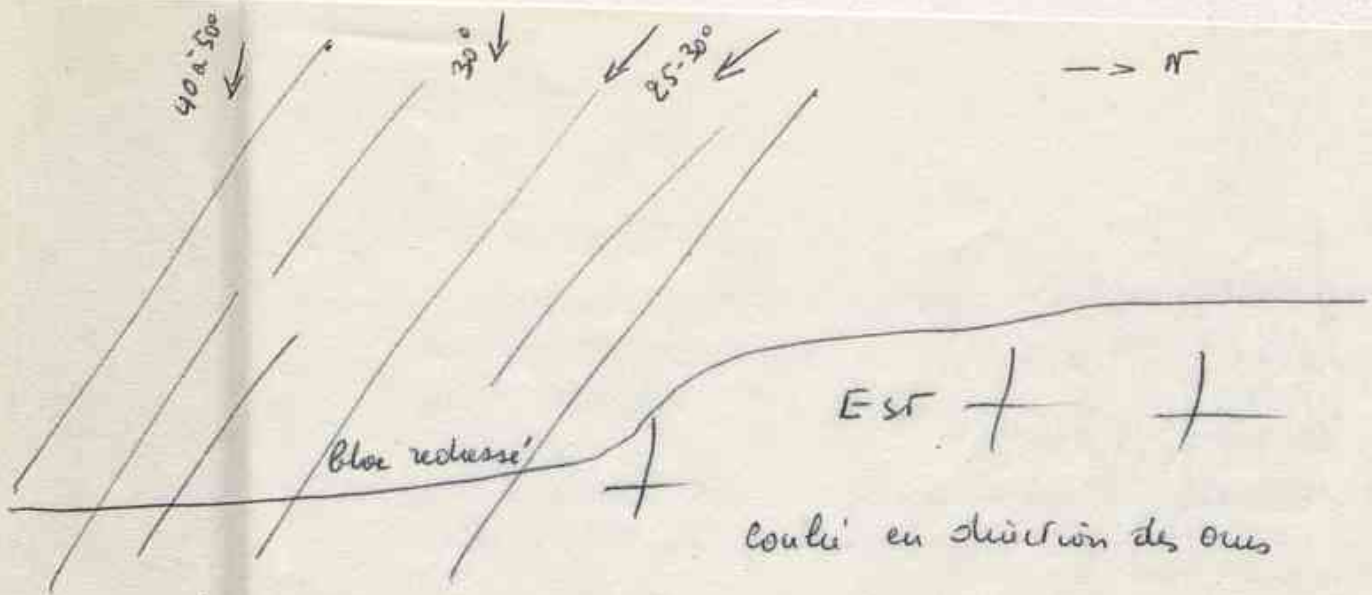 40 à 50°
30°
25-30°
--> N
Est
bloc redressé
en direction des